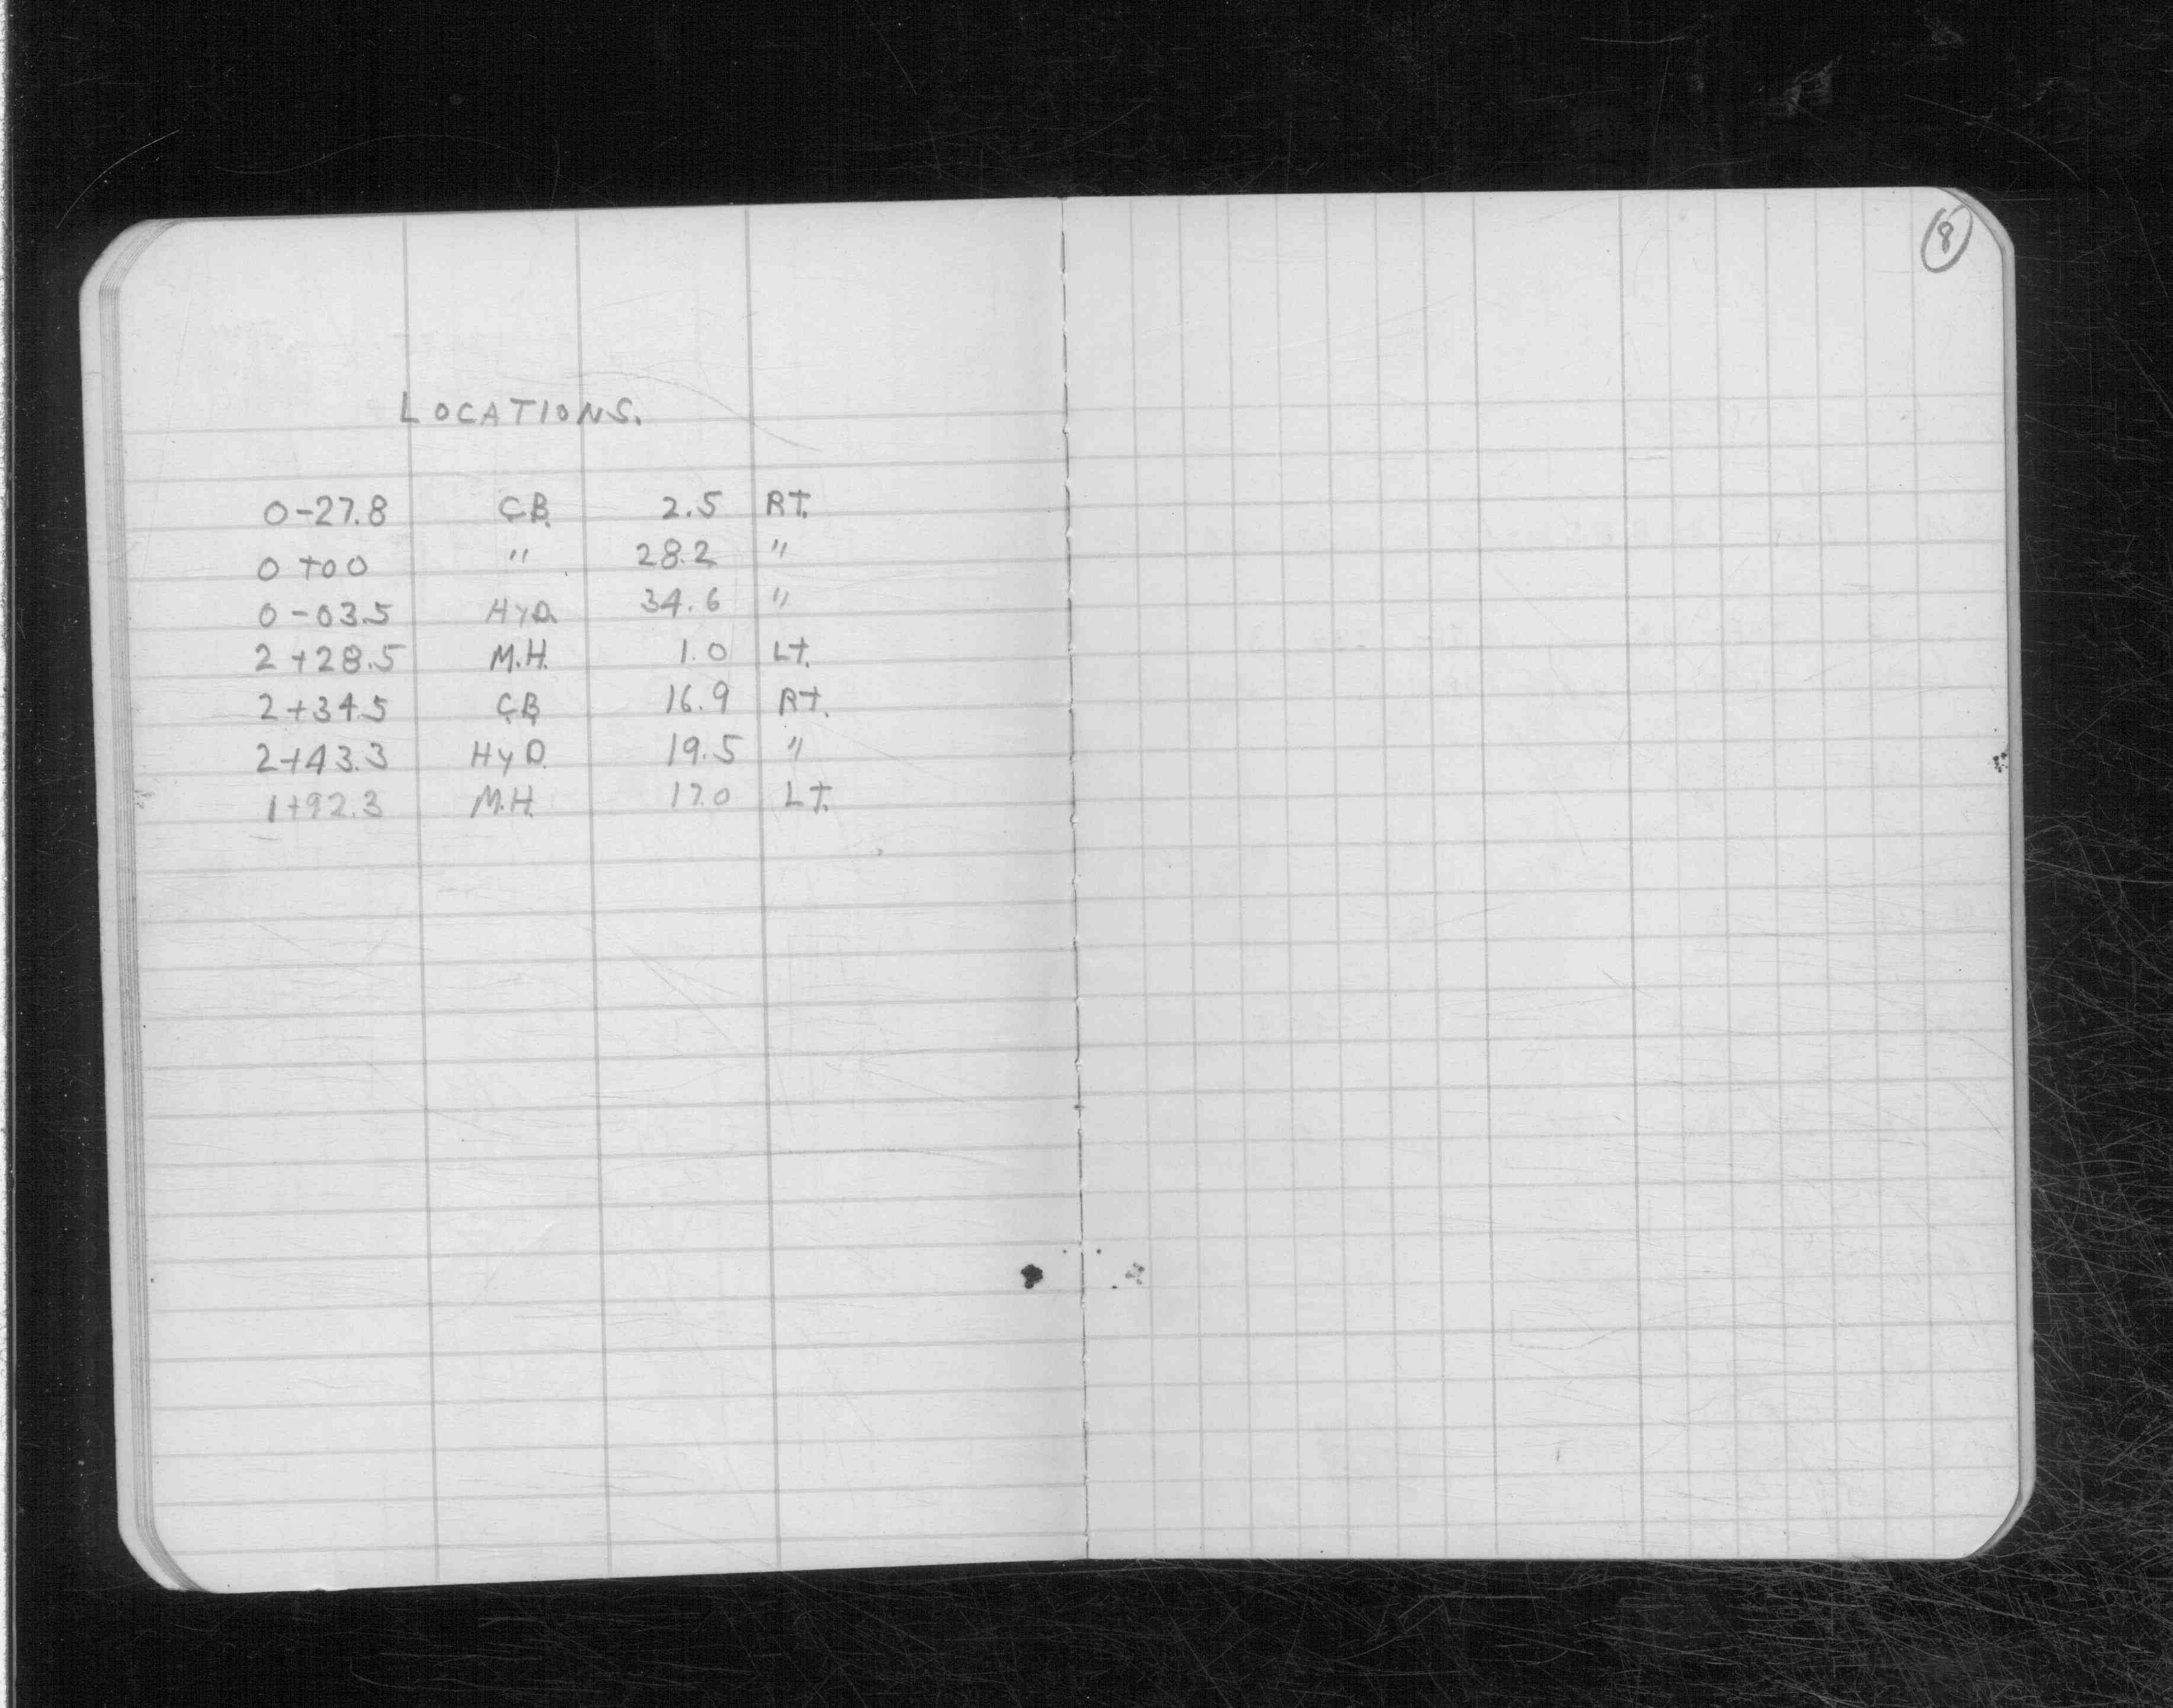 8
LOCATIONS.
0-27.8 C.B. 2.5 RT.
0+00 " 28.2 "
0-03.5 HYD. 34.6 "
2+28.5 M.H. 1.0 LT.
2+34.5 C.B. 16.9 RT.
2+43.3 HYD. 19.5 "
1+92.3 M.H. 17.0 LT.